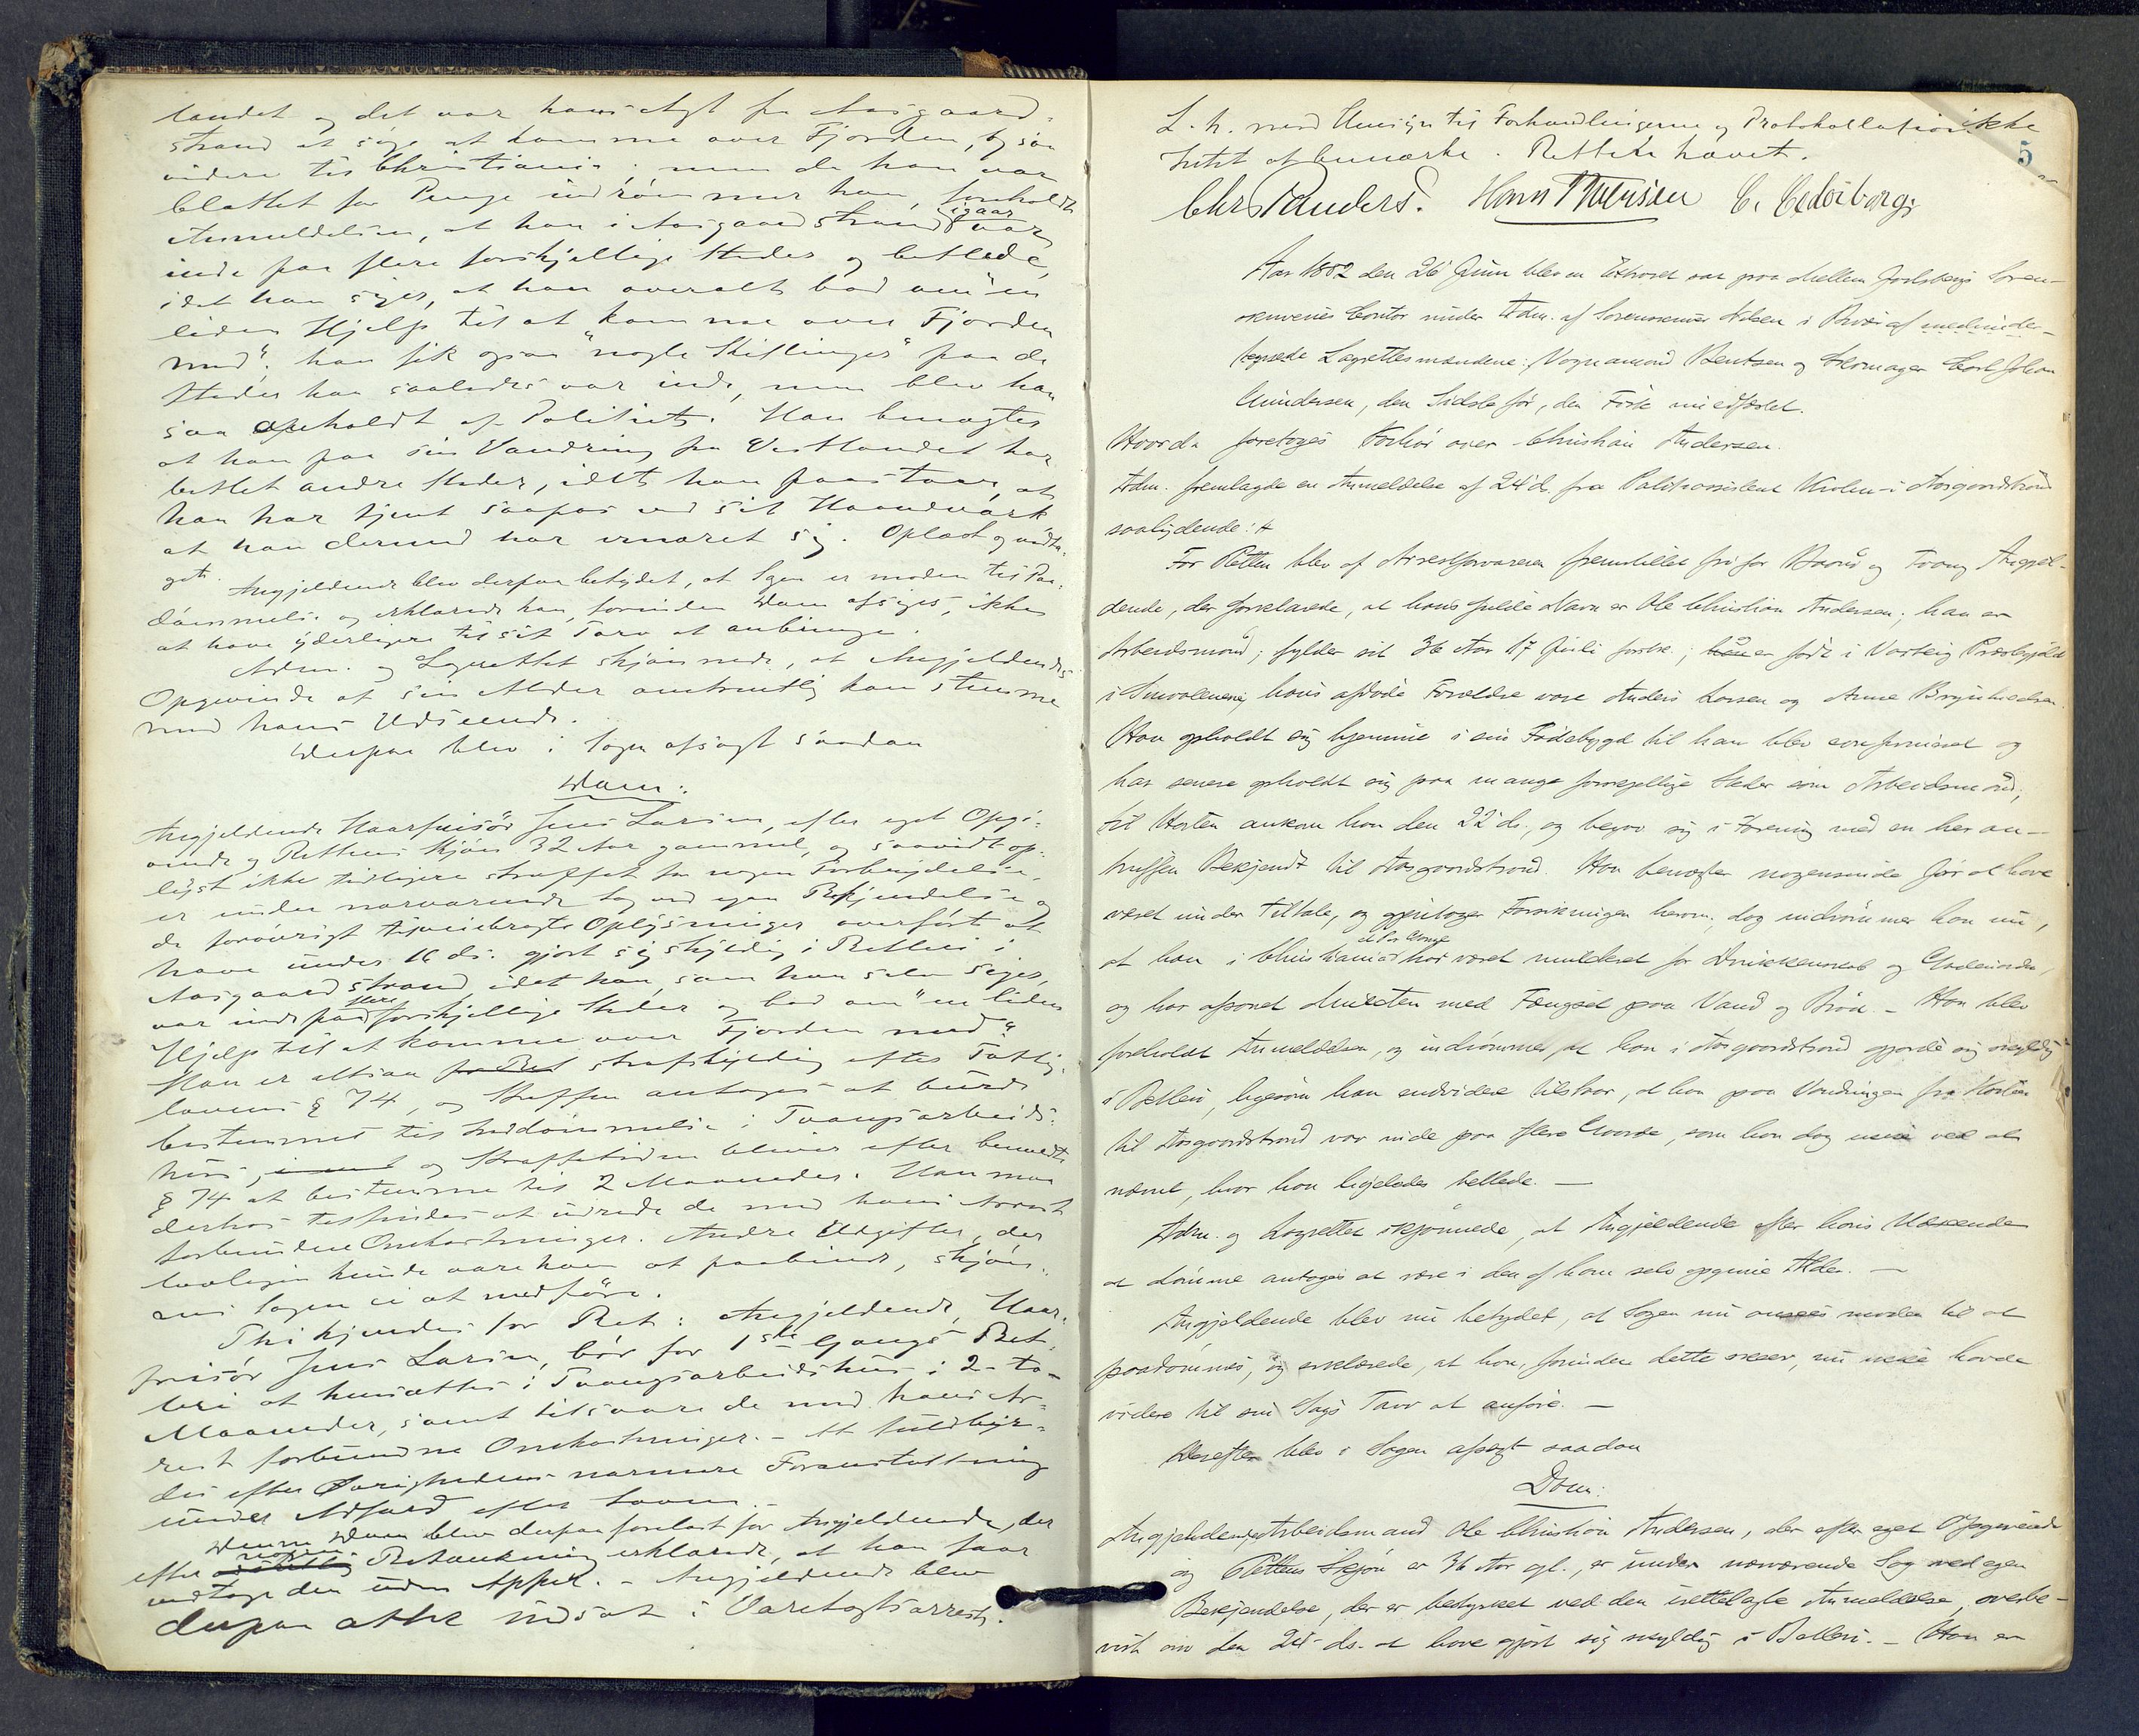 landet og det var hans Agt fra Aasgaard-
strand at søge at komme over Fjorden, og saa
videre til Christiania; men da han var
blottet for Penge indrømmer han, foreholdt
Anmeldelsen, at han i Aasgaardstrand igaar var
inde paa flere forskjellige Steder og betlede,
idet han siger, at han overalt bad om "en
liden Hjelp til at komme over Fjorden
med"; han fik ogsaa "nogle Skillinger" paa de
Steder han saaledes var inde, men blev han
saa opholdt af Politiet. Han benægter
at han paa sin Vandring fra Vestlandet har
betlet andre Steder, idet han paastaar, at
han har tjent saapas ved sit Haandværk
at han dermed har ernæret sig. Oplæst og vedta-
get.
Angjeldende blev derpaa betydet, at Sagen er moden til Paa-
dømmelse og erklærede han, forinden Dom afsiges, ikke
at have yderligere til sit Tarv at anbringe.
Adm. og Lagrettet skjønnede, at Angjeldendes
Opgivende af sin Alder omtrentlig kan stemme
med hans Udseende.
Derpaa blev i Sagen afsagt saadan
Dom:
Angjeldende Haarfrisör Jens Larsen, efter eget Opgi-
vende og Rettens Skjøn 32 Aar gammel, og saavidt op-
lyst ikke tidligere straffet for nogen Forbrydelse,
er under nærværende Sag ved egen Bekjendelse og
de forøvrigt tilveiebragte Oplysninger overført at
have under 16 ds. gjort sig skyldig i Betleri i
Aasgaardstrand idet han, som han selv siger,
var inde paa flere forskjellige Steder og bad om "en liden
Hjelp til at komme over Fjorden med".
Han er altsaa for Bet strafskyldig efter Fattig-
lovens § 74, og Straffen antages at burde
bestemmes til Inddømmelse i Tvangsarbeids-
hus, og Straffetiden bliver efter bemeldte
§ 74 at bestemme til 2 Maaneder. Han maa
derhos tilfindes at udrede de med hans Arrest
forbundne Omkostninger. Andre Udgifter, der
lovligen kunde være ham at paabinde, skjøn-
nes Sagen ei at medføre.
Thi kjendes for Ret: Angjeldende, Haar-
frisør Jens Larsen, bør for 1ste Gangs Bet-
leri at hensættes i Tvangsarbeidshus i 2 - to -
Maaneder, samt tilsvare de med hans Ar-
rest forbundne Omkostninger. - At fuldbyr-
des efter Øvrighedens nærmere Foranstaltning
under Adfærd efter Loven.
Denne Dom blev derpaa forelæst for Angjeldende, der
efter nogen Betænkning erklærede, at han saar
vedtage den uden Appel. - Angjeldende blev
derpaa atter indsat i Varetægtsarrest.
5
L. R. med Hensyn til Forhandlingerne og Protokollationen ikke
Intet at bemærke. Retten hævet.
Chr. Sanders. Hans C. Cedsiborg
Aar 1882 den 26 Juni blev en Extraret sat paa Mellem Jarlsbergs Soren-
skriveries Contor under Adm. af Sorenskriver Nilsen i Overvær af medunder-
tegnede Lagrettesmændene: Vognmand Bentsen og Skomager Carl Johan
Gundersen, den Sidste før, den Første nu edfæstet.
Hvorda foretoges Forhør over Christian Andersen.
Adm. fremlagde en Anmeldelse af 24 ds. fra Politiassistent i Aasgaardstrand
saalydende: A
For Retten blev af Arrestforvareren fremstillet fri for Baand og Tvang Angjel-
dende, der forklarede, at hans fulde Navn er Ole Christian Andersen; han er
Arbeidsmand; fylder sit 36 Aar 17 Juli førstk.; han er født i Varteig Præstegjeld
i Smaalenene; hans afdøde Forældre vare Anders Larsen og Anne Brynildsen.
Han opholdt sig hjemme i sin Fødebygd til han blev confirmeret og
har senere opholdt sig paa mange forskjellige Steder som Arbeidsmand;
til Horten ankom han den 22 ds., og begav sig i Forening med en her an-
truffen Bekjendt til Aasgaardstrand. Han benægter nogensinde før at have
været under Tiltale, og gjentager Forsikringen herom; dog indrømmer han nu,
at han i Christiania et Par Gange har været mulkteret for Drukkenskab og Gadeuorden,
og har afsonet Mulkten med Fængsel paa Vand og Brød. - Han blev
foreholdt Anmeldelsen, og indrømmer, at han i Aasgaardstrand gjorde sig skyldig
i Betleri, ligesom han endvidere tilstaar, at han paa Vandringen fra Horten
til Aasgaardstrand var inde paa flere Gaarde, som han dog ikke ved at
nævne, hvor han ligeledes betlede. -
Adm. og Lagrettet skjønnede, at Angjeldende efter hans Udseende
at dømme antages at være i den af ham selv opgivne Alder. -
Angjeldende blev nu betydet, at Sagen nu ansees moden til at
paadømmes, og erklærede, at han, forinden dette skeer, nu ikke havde
videre til sin Sags Tarv at anføre. -
Derefter blev i Sagen afsagt saadan
Dom:
Angjeldende, Arbeidsmand Ole Christian Andersen, der efter eget Opgivende
og Rettens Skjøn er 36 Aar gl., er under nærværende Sag ved egen
Bekjendelse, der er bestyrket ved den irettelagte Anmeldelse, overbe-
vist om den 24 ds. at have gjort sig skyldig i Betleri. - Han er